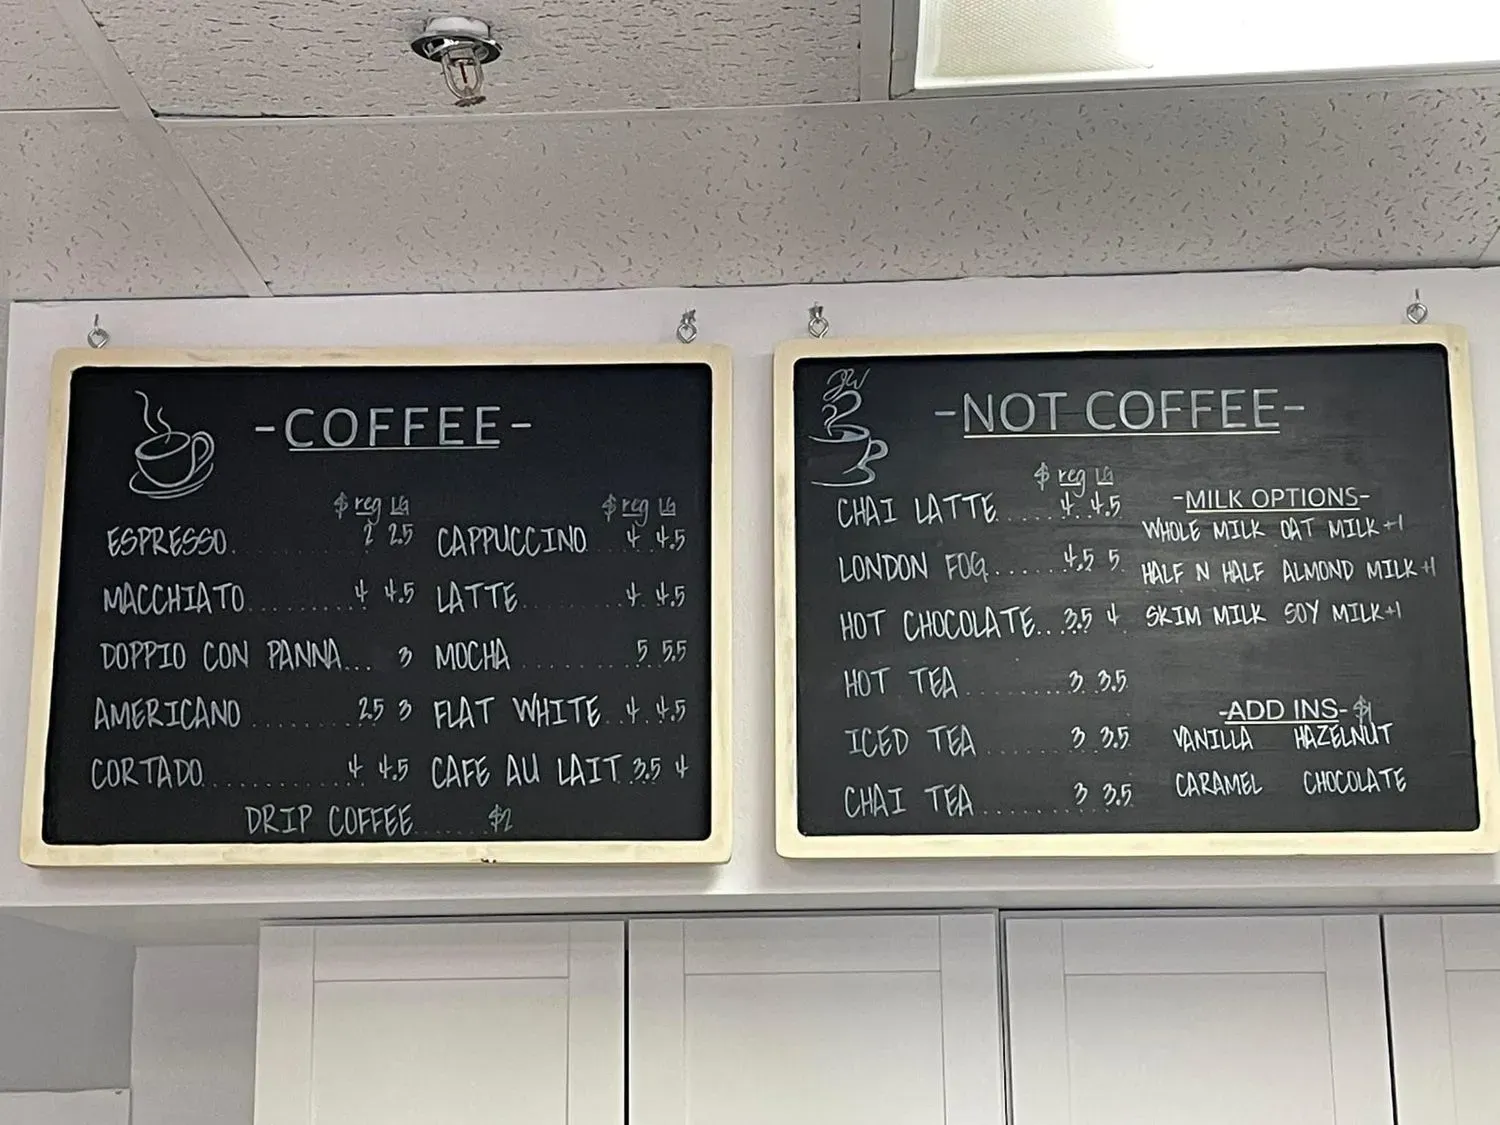 -COFFEE-
$ reg LG
ESPRESSO. 2 2.5
MACCHIATO.......... 4 4.5
DOPPIO CON PANNA... 3
AMERICANO......... 2.5 3
CORTADO............ 4 4.5
$ reg LG
CAPPUCCINO... 4 4.5
LATTE.......... 4 4.5
MOCHA.......... 5 5.5
FLAT WHITE.. 4 4.5
CAFE AU LAIT 3.5 4
DRIP COFFEE...... $2
-NOT COFFEE-
$ reg LG
CHAI LATTE..... 4 4.5
LONDON FOG...... 4.5 5
HOT CHOCOLATE... 3.5 4
HOT TEA......... 3 3.5
ICED TEA....... 3 3.5
CHAI TEA....... 3 3.5
-MILK OPTIONS-
WHOLE MILK OAT MILK +1
HALF N HALF ALMOND MILK +1
SKIM MILK SOY MILK +1
-ADD INS- $1
VANILLA HAZELNUT
CARAMEL CHOCOLATE